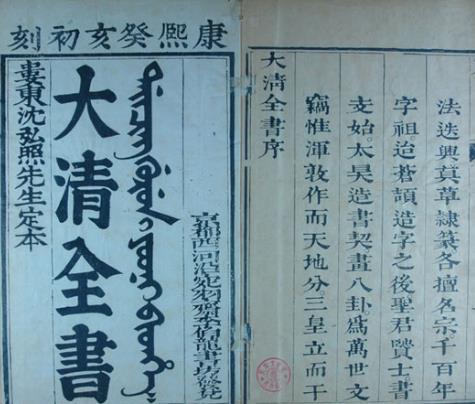 康熙癸亥初刻
婁東沈弘照先生定本
大清全書
ᡩᠠᡳᠴᡳᠩ ᡤᡠᡵᡠᠨ ᡳ ᠶᠣᠣᠨᡳ ᠪᡳᡨᡥᡝ
京都西河沿宛羽齋李伯龍書坊發兌
大清全書序
竊惟渾敦作而天地分。三皇立而干
支始。太昊造書契畫八卦。爲萬世文
字祖。迨蒼頡造字之後聖君賢士書
法迭興真草隸篆各擅名宗。千百年